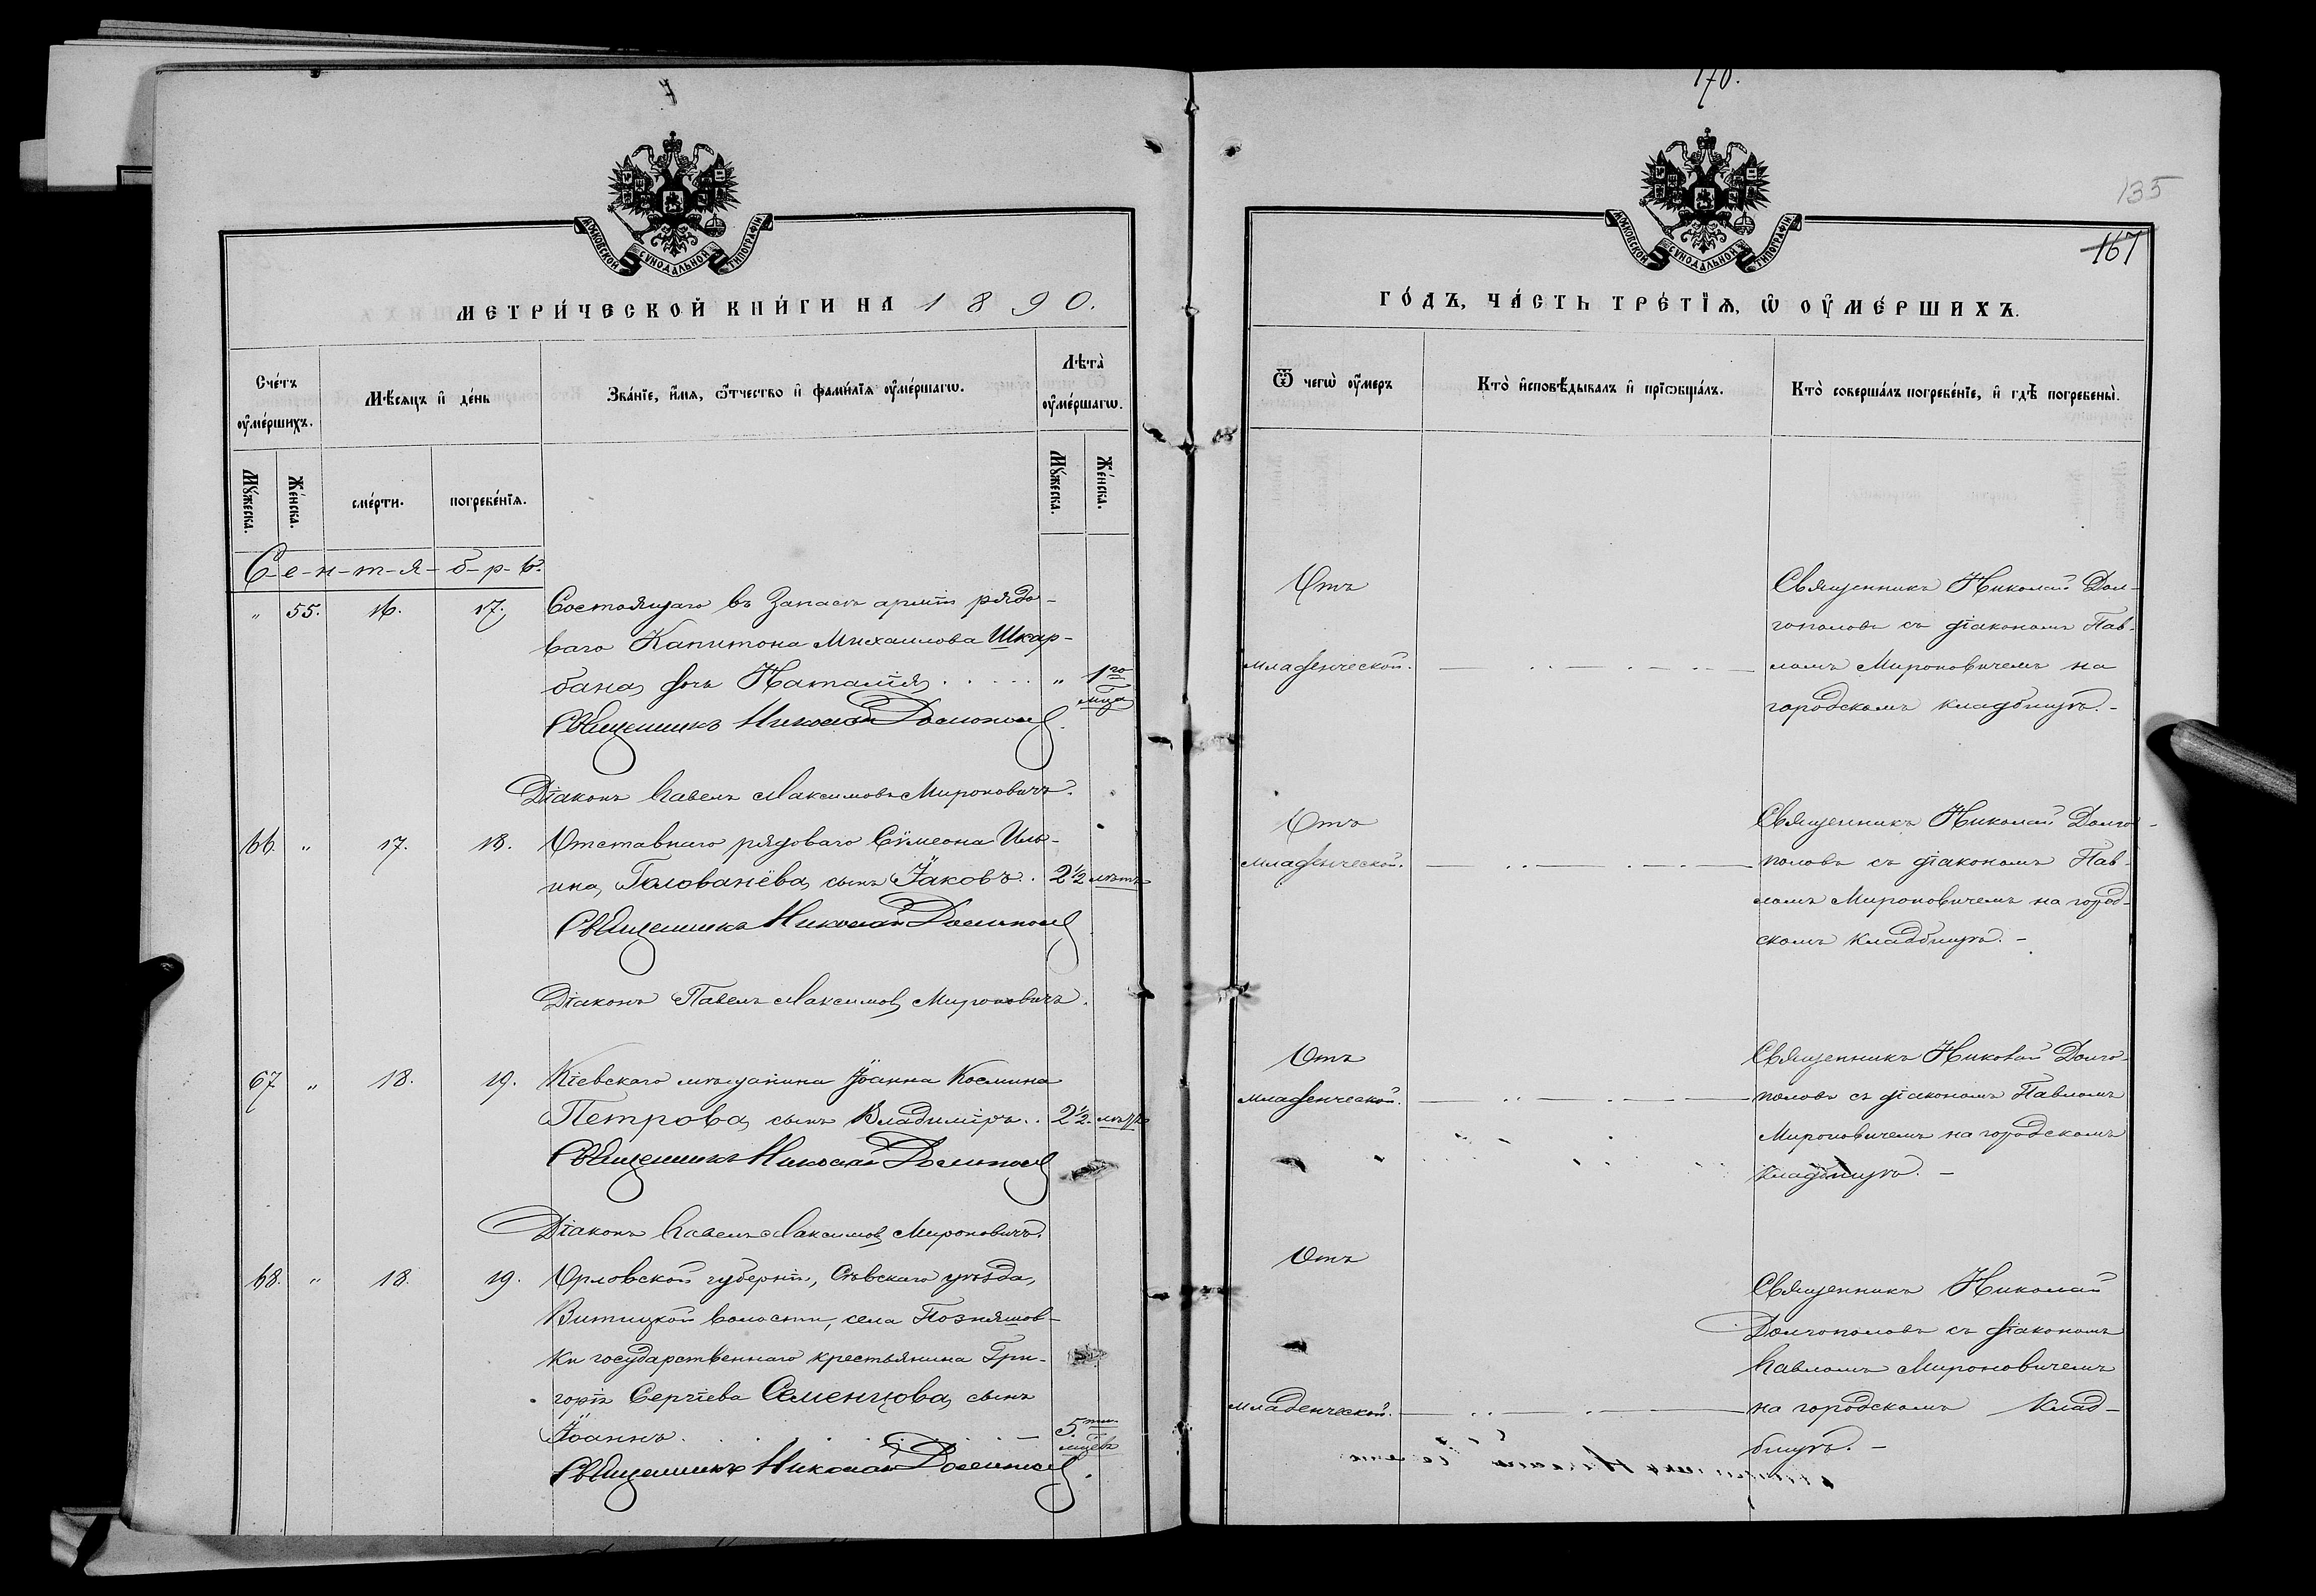 170.
135
167
МОСКОВСКОЙ СУНОДАЛЬНОЙ ТИПОГРАФІИ
МОСКОВСКОЙ СУНОДАЛЬНОЙ ТИПОГРАФІИ
МЕТРИ́ЧЕСКОЙ КНИ́ГИ НА 1890.
Сче́тъ ᲂу҆ме́ршихъ.
Мѣ́сяцъ и҆ де́нь
Зва́нїе, и҆́мѧ, ѻ҆́тчество и҆ фами́лїѧ ᲂу҆ме́ршагѡ.
Лѣ́та ᲂу҆ме́ршагѡ.
Мꙋ́жеска.
Же́нска.
сме́рти.
погребе́нїѧ.
Мꙋ́жеска.
Же́нска.
С-е-н-т-я-б-р-ь.
" 55. 16. 17. Состоящаго въ Запасѣ арміи рядо-
ваго Капитона Михаилова Шкар-
бана, дочь Наталія . . . . . " 1го
мца
Священникъ Николай Долгополов
Діаконъ Павелъ Максимовъ Мироновичъ.
66. " 17. 18. Отставнаго рядоваго Сѵмеона Иль-
ина, Голованёва, сынъ Іаковъ. . 2½ лѣтъ
Священникъ Николай Долгополов
Діаконъ Павелъ Максимов Мироновичъ.
67 " 18. 19. Кіевскаго мѣщанина Іоанна Космина
Петрова, сынъ Владиміръ. . 2½. лѣтъ
Священникъ Николай Долгополов
Діаконъ Павелъ Максимов Мироновичъ.
68. " 18. 19. Орловской губерніи, Сѣвскаго уѣзда,
Витицкой волости, села Позняшов-
ки государственнаго крестьянина Гри-
горія Сергіева Семенцова, сынъ
Іоаннъ. . . . . . . 5ти
мцевъ
Священникъ Николай Долгополов
ГО́ДЪ, ЧА́СТЬ ТРЕ́ТЇѦ, Ѡ҆ ОУ҆МЕ́РШИХЪ.
Ѿ чегѡ̀ ᲂу҆́меръ
Кто̀ и҆сповѣ́дывалъ и҆ прїѻбща́лъ.
Кто̀ соверша́лъ погребе́нїе, и҆ гдѣ̀ погребены̀.
Отъ
младенческой.
Священникъ Николай Дол-
гополовъ съ діакономъ Пав-
ломъ Мироновичемъ на
городскомъ кладбищѣ. -
Отъ
младенческой.
Священникъ Николай Долго-
половъ съ діакономъ Пав-
ломъ Мироновичемъ на город-
скомъ кладбищѣ. -
Отъ
младенческой.
Священникъ Николай Долго-
половъ съ діакономъ Павломъ
Мироновичемъ на городскомъ
кладбищѣ. -
Отъ
младенческой.
Священникъ Николай
Долгополовъ съ діакономъ
Павломъ Мироновичемъ
на городскомъ клад-
бищѣ. -